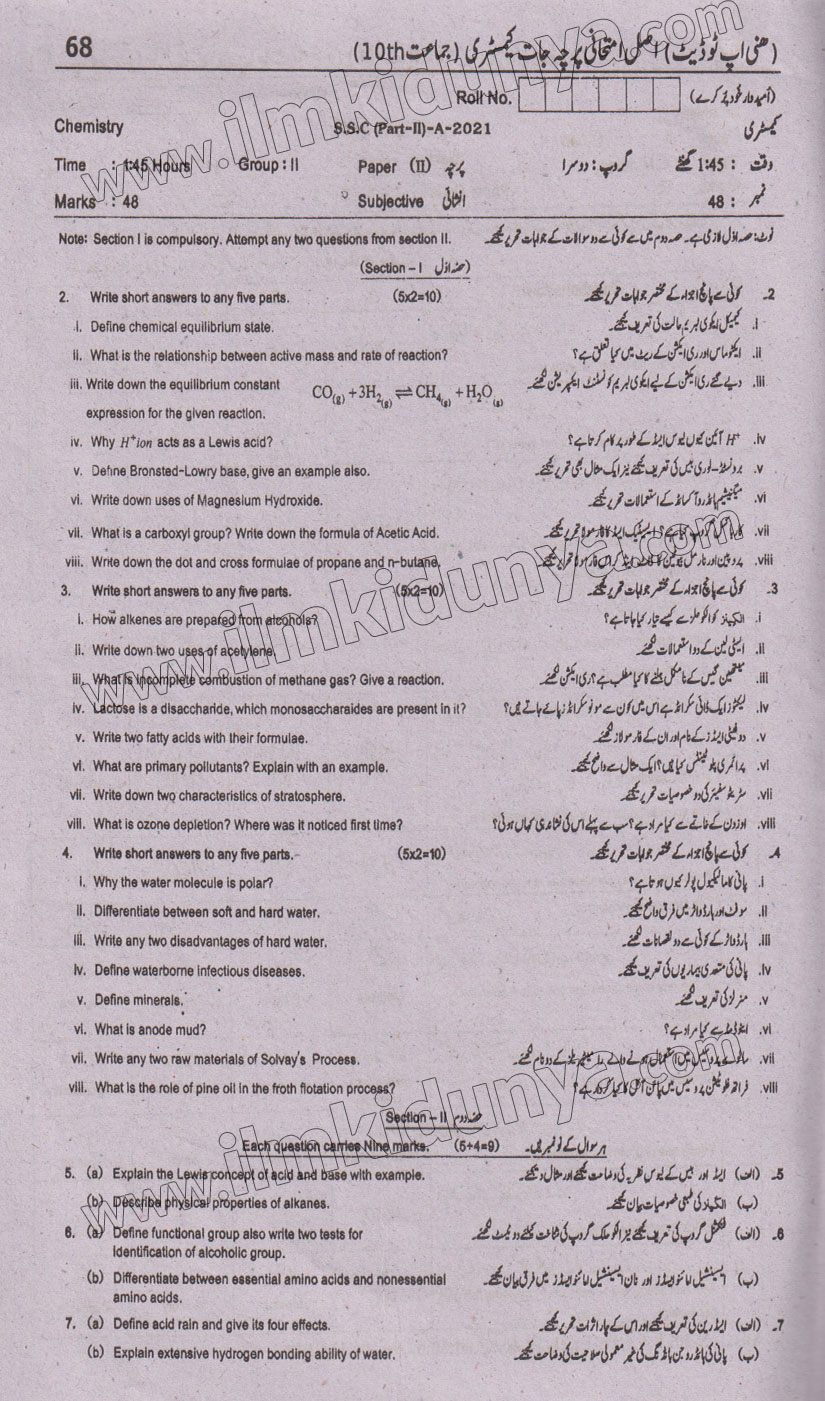 68 (ھنی اپ ٹو ڈیٹ) اصل امتحانی پرچہ جات کیمسٹری (جماعت 10th)
Roll No. (امیدوار خود پُر کرے)
Chemistry S.S.C (Part-II)-A-2021 کیمسٹری
Time : 1:45 Hours Group : II Paper (II) پرچہ گروپ : دوسرا وقت : 1:45 گھنٹے
Marks : 48 Subjective انشائی نمبر : 48
Note: Section I is compulsory. Attempt any two questions from section II. نوٹ: حصہ اوّل لازمی ہے۔ حصہ دوم میں سے کوئی سے دو سوالات کے جوابات تحریر کیجئے۔
(Section – I حصّہ اوّل)
2. Write short answers to any five parts. (5x2=10) 2۔ کوئی سے پانچ اجزاء کے مختصر جوابات تحریر کیجئے۔
i. Define chemical equilibrium state. i. کیمیکل ایکوی لبریم حالت کی تعریف کیجئے۔
ii. What is the relationship between active mass and rate of reaction? ii. ایکٹو ماس اور ری ایکشن کے ریٹ میں کیا تعلق ہے؟
iii. Write down the equilibrium constant CO(g) + 3H2(g) ⇌ CH4(g) + H2O(g) iii. دیے گئے ری ایکشن کے لیے ایکوی لبریم کونسٹنٹ ایکسپریشن لکھئے۔
expression for the given reaction.
iv. Why H+ion acts as a Lewis acid? iv. H+ آئین کیوں لیوس ایسڈ کے طور پر کام کرتا ہے؟
v. Define Bronsted-Lowry base, give an example also. v. برونسٹڈ-لوری بیس کی تعریف کیجئے نیز ایک مثال بھی تحریر کیجئے۔
vi. Write down uses of Magnesium Hydroxide. vi. میگنیشیم ہائڈروآکسائڈ کے استعمالات تحریر کیجئے۔
vii. What is a carboxyl group? Write down the formula of Acetic Acid. vii. کاربوآکسل گروپ کیا ہے؟ ایسیٹک ایسڈ کا فارمولا تحریر کیجئے۔
viii. Write down the dot and cross formulae of propane and n-butane. viii. پروپین اور نارمل بیوٹین کا ڈاٹ اینڈ کراس فارمولا تحریر کیجئے۔
3. Write short answers to any five parts. (5x2=10) 3۔ کوئی سے پانچ اجزاء کے مختصر جوابات تحریر کیجئے۔
i. How alkenes are prepared from alcohols? i. الکینز کو الکوحلز سے کیسے تیار کیا جاتا ہے؟
ii. Write down two uses of acetylene. ii. ایسٹی لین کے دو استعمالات لکھئے۔
iii. What is incomplete combustion of methane gas? Give a reaction. iii. میتھین گیس کے نامکمل جلنے کا کیا مطلب ہے؟ ری ایکشن لکھئے۔
iv. Lactose is a disaccharide, which monosaccharaides are present in it? iv. لیکٹوز ایک ڈائی سکرائڈ ہے اس میں کون سے مونوسکرائڈز پائے جاتے ہیں؟
v. Write two fatty acids with their formulae. v. دو فیٹی ایسڈز کے نام اور ان کے فارمولاز لکھئے۔
vi. What are primary pollutants? Explain with an example. vi. پرائمری پلوٹینٹس کیا ہیں؟ ایک مثال سے واضح کیجئے۔
vii. Write down two characteristics of stratosphere. vii. سٹریٹوسفیئر کی دو خصوصیات تحریر کیجئے۔
viii. What is ozone depletion? Where was it noticed first time? viii. اوزون کے خاتمے سے کیا مراد ہے؟ سب سے پہلے اس کی نشاندہی کہاں ہوئی؟
4. Write short answers to any five parts. (5x2=10) 4۔ کوئی سے پانچ اجزاء کے مختصر جوابات تحریر کیجئے۔
i. Why the water molecule is polar? i. پانی کا مالیکیول پولر کیوں ہوتا ہے؟
ii. Differentiate between soft and hard water. ii. سوفٹ اور ہارڈ واٹر میں فرق واضح کیجئے۔
iii. Write any two disadvantages of hard water. iii. ہارڈ واٹر کے کوئی سے دو نقصانات لکھئے۔
iv. Define waterborne infectious diseases. iv. پانی کی متعدی بیماریوں کی تعریف کیجئے۔
v. Define minerals. v. منرلز کی تعریف لکھئے۔
vi. What is anode mud? vi. اینوڈ مڈ سے کیا مراد ہے؟
vii. Write any two raw materials of Solvay's Process. vii. سالوے پروسیس میں استعمال ہونے والے را میٹیریلز کے دو نام لکھئے۔
viii. What is the role of pine oil in the froth flotation process? viii. فراتھ فلوٹیشن پروسیس میں پائن آئل کا کیا کردار ہے؟
Section – II حصّہ دوم
Each question carries Nine marks. (5+4=9) ہر سوال کے نو نمبر ہیں۔
5. (a) Explain the Lewis concept of acid and base with example. 5۔ (الف) ایسڈ اور بیس کے لیوس نظریہ کی وضاحت کیجئے اور مثال دیجئے۔
(b) Describe physical properties of alkanes. (ب) الکینز کی طبعی خصوصیات بیان کیجئے۔
6. (a) Define functional group also write two tests for 6۔ (الف) فنکشنل گروپ کی تعریف کیجئے نیز الکوحلک گروپ کی شناخت کیلئے دو ٹیسٹ لکھئے۔
identification of alcoholic group.
(b) Differentiate between essential amino acids and nonessential (ب) ایسینشیل امائنو ایسڈز اور نان ایسینشیل امائنو ایسڈز میں فرق بیان کیجئے۔
amino acids.
7. (a) Define acid rain and give its four effects. 7۔ (الف) ایسڈ رین کی تعریف کیجئے اور اس کے چار اثرات تحریر کیجئے۔
(b) Explain extensive hydrogen bonding ability of water. (ب) پانی کی ہائڈروجن بانڈنگ کی غیر معمولی صلاحیت کی وضاحت کیجئے۔
www.ilmkidunya.com
www.ilmkidunya.com
www.ilmkidunya.com